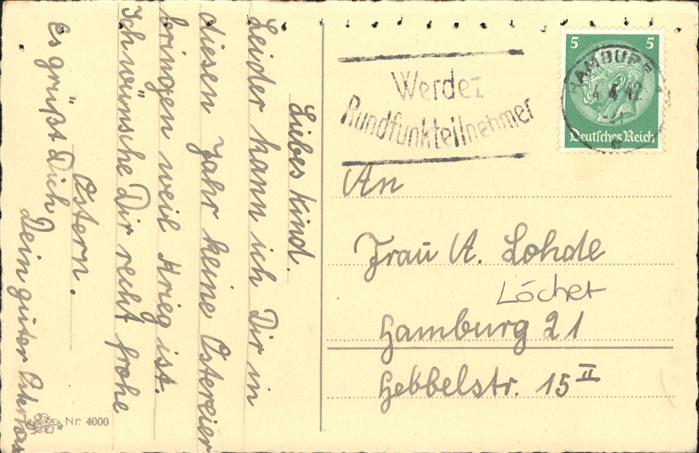 Liebes Kind.
Leider kann ich Dir in
diesen Jahr keine Ostereier
bringen weil Krieg ist.
Ich wünsche Dir recht frohe
Ostern.
Es grüßt Dich
Dein guter
Nr. 4000
Werdet
Rundfunkteilnehmer
5 5
HAMBURG
4.4.42
Deutsches Reich
An
Frau A. Lohde
Löcher
Hamburg 21
Hebbelstr. 15 II